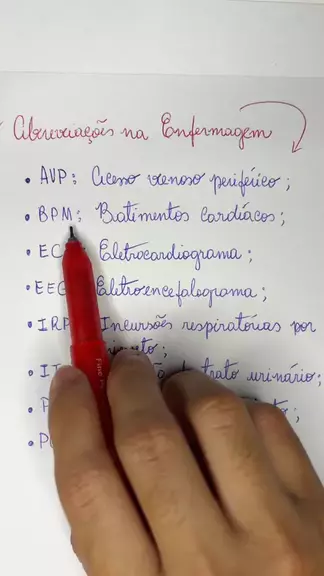 Abreviações na Enfermagem
• AVP: Acesso venoso periférico;
• BPM: Batimentos cardíacos;
• EC Eletrocardiograma;
• EEG Eletroencefalograma;
• IRP Incursões respiratórias por
• IT trato urinário;